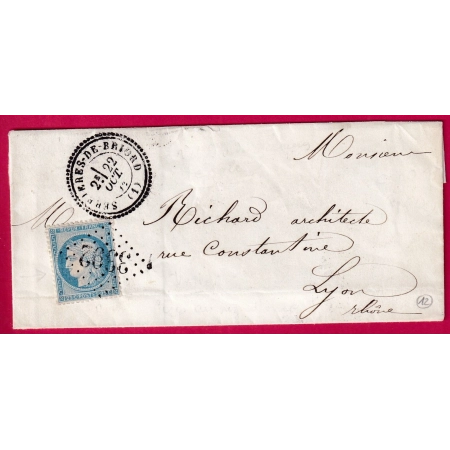 SERRIERES-DE-BRIORD (1)
22
OCT
Monsieur
M Richard architecte
rue Constantine
Lyon
rhône
REPUB FRANC
12